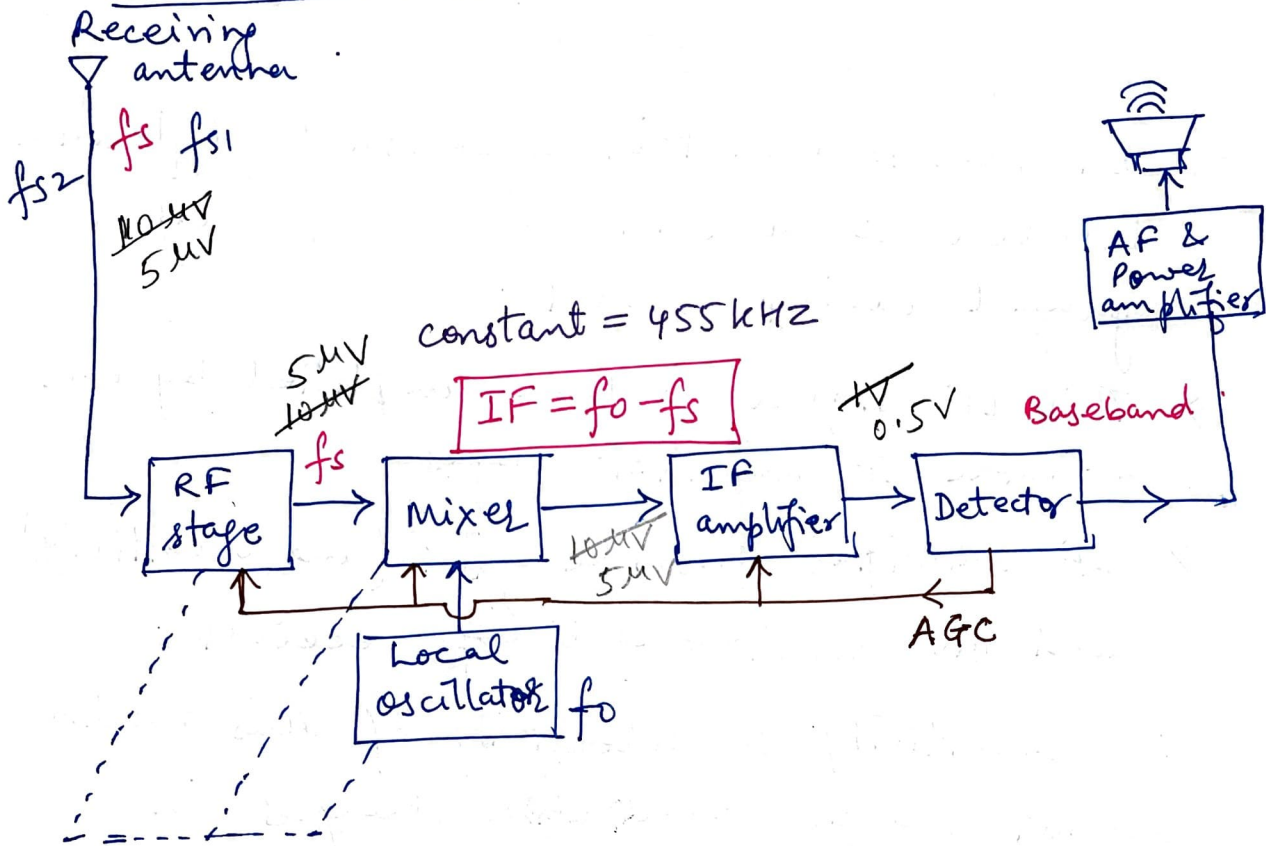 Receiving
antenna
fs fs1
fs2
10 μV
5 μV
AF &
Power
amplifier
constant = 455 kHz
5 μV
10 μV
IF = fo - fs
1V
0.5V
Baseband
fs
RF
stage
Mixer
10 μV
5 μV
IF
amplifier
Detector
AGC
Local
oscillator
fo